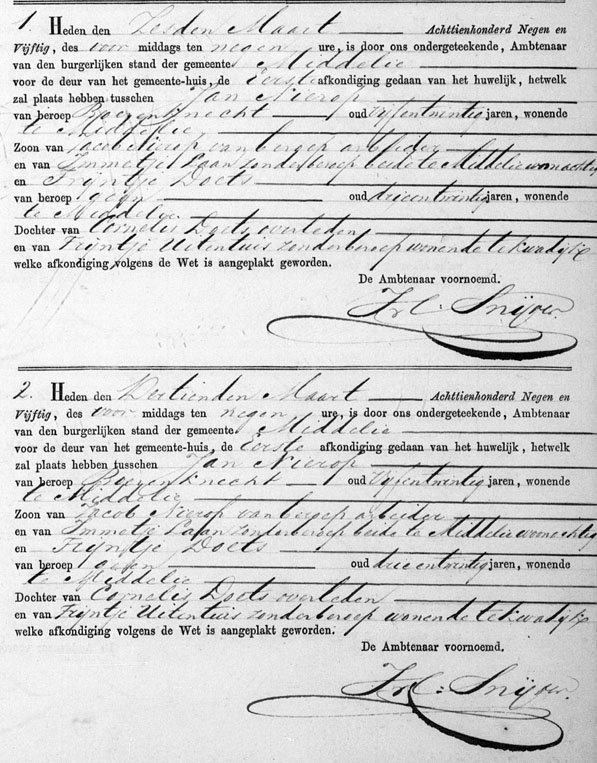 1. Heden den Zesden Maart Achttienhonderd Negen en
Vijftig, des voor middags ten negen ure, is door ons ondergeteekende, Ambtenaar
van den burgerlijken stand der gemeente Middelie
voor de deur van het gemeente-huis, de Eerste afkondiging gedaan van het huwelijk, hetwelk
zal plaats hebben tusschen Jan Nierop
van beroep Boerenknecht oud vijfentwintig jaren, wonende
te Middelie
Zoon van Jacob Nierop van beroep arbeider
en van Immetje Laan zonder beroep beide te Middelie woonachtig
en Trijntje Doets
van beroep geen oud drieentwintig jaren, wonende
te Middelie
Dochter van Cornelis Doets overleden
en van Trijntje Uitentuis zonder beroep wonende te Kwadijk
welke afkondiging volgens de Wet is aangeplakt geworden.
De Ambtenaar voornoemd.
Snijder
2. Heden den Dertienden Maart Achttienhonderd Negen en
Vijftig, des voor middags ten negen ure, is door ons ondergeteekende, Ambtenaar
van den burgerlijken stand der gemeente Middelie
voor de deur van het gemeente-huis, de Eerste afkondiging gedaan van het huwelijk, hetwelk
zal plaats hebben tusschen Jan Nierop
van beroep Boerenknecht oud vijfentwintig jaren, wonende
te Middelie
Zoon van Jacob Nierop van beroep arbeider
en van Immetje Laan zonder beroep beide te Middelie woonachtig
en Trijntje Doets
van beroep geen oud drieentwintig jaren, wonende
te Middelie
Dochter van Cornelis Doets overleden
en van Trijntje Uitentuis zonder beroep wonende te Kwadijk
welke afkondiging volgens de Wet is aangeplakt geworden.
De Ambtenaar voornoemd.
Snijder